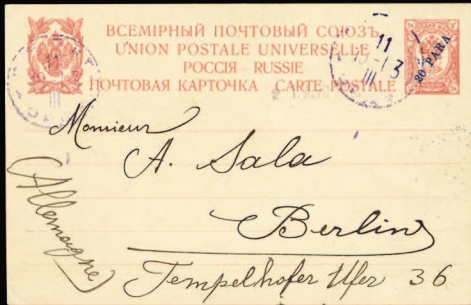 ВСЕМІРНЫЙ ПОЧТОВЫЙ СОЮЗЪ
UNION POSTALE UNIVERSELLE
РОССІЯ – RUSSIE
ПОЧТОВАЯ КАРТОЧКА CARTE POSTALE
20 PARA
11
III
11
13
III
Monsieur
A. Sala
Berlin
Tempelhofer Ufer 36
(Allemagne)